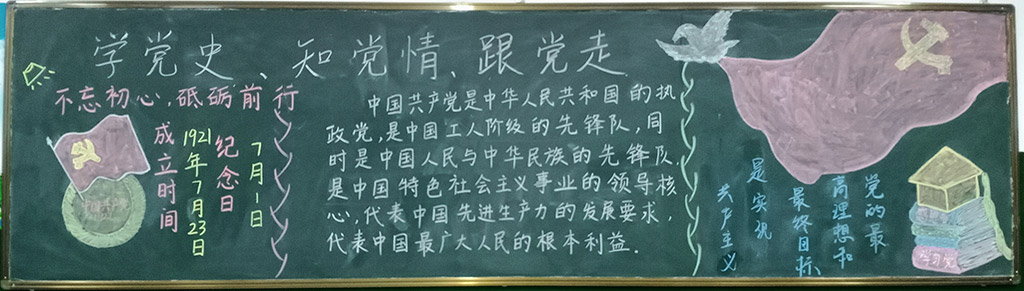 学党史、知党情、跟党走.
不忘初心,砥砺前行
成立时间
1921年7月23日
纪念日
7月1日
中国共产党是中华人民共和国的执
政党,是中国工人阶级的先锋队,同
时是中国人民与中华民族的先锋队,
是中国特色社会主义事业的领导核
心,代表中国先进生产力的发展要求,
代表中国最广大人民的根本利益.
党的最
高理想和
最终目标
是实现
共产主义
学习党